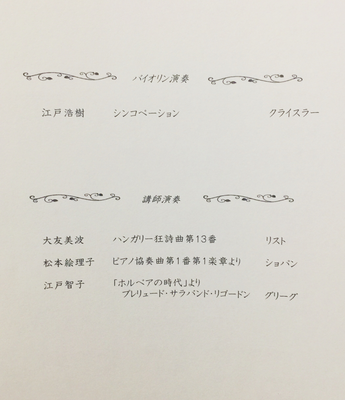 バイオリン演奏
江戸浩樹 シンコペーション クライスラー
講師演奏
大友美波 ハンガリー狂詩曲第13番 リスト
松本絵理子 ピアノ協奏曲第1番第1楽章より ショパン
江戸智子 「ホルベアの時代」より
プレリュード・サラバンド・リゴードン グリーグ